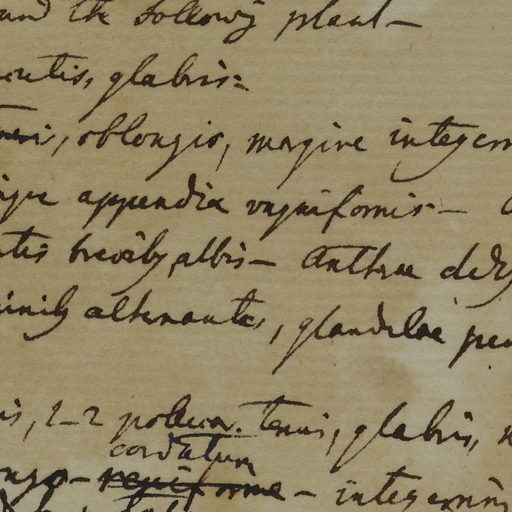 und the following plant —
entis, glabris:
oblongis, margine integerr
que appendix vaginiformis — 
tis brevib, albis — Antherae
alternantes, glandulae pe
is, 2-2 pollicar. tenuis, glabris,
cordatum
ongo — reniforme — integerrim